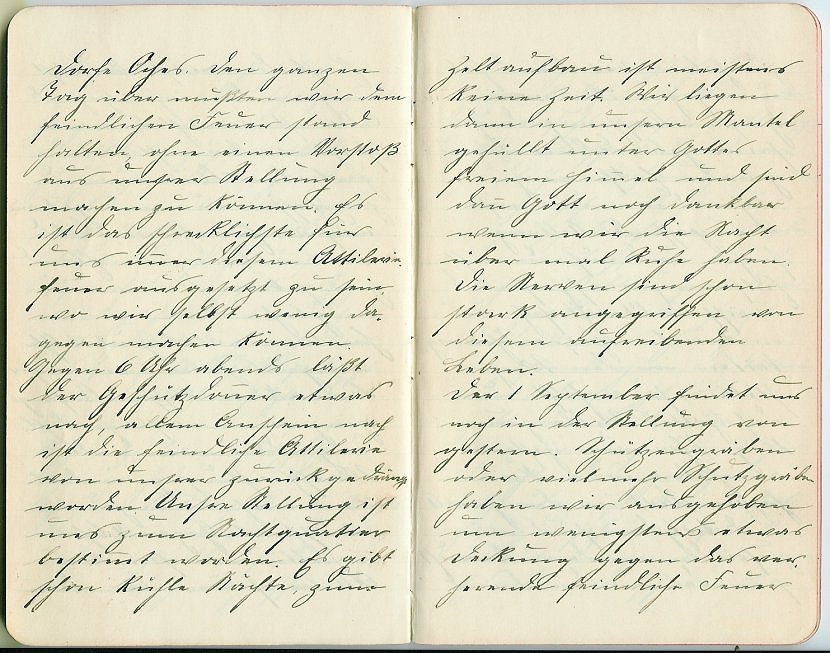 Dorfe Oches. Den ganzen
Tag über mußten wir dem
feindlichen Feuer stand
halten, ohne einen Vorstoß
aus unsrer Stellung
machen zu können. Es
ist das schrecklichste für
uns immer diesem Attilerie-
feuer ausgesetzt zu sein,
wo wir selbst wenig da-
gegen machen können.
Gegen 6 Uhr abends läßt
der Geschützdonner etwas
nach, allem Anschein nach
ist die feindliche Attilerie
von unsrer zurückgedrängt
worden. Unsre Stellung ist
uns zum Nachtquatier
bestimmt worden. Es gibt
schon kühle Nächte, zum
Zeltaufbau ist meistens
keine Zeit. Wir liegen
dann in unsern Mantel
gehüllt unter Gottes
freiem Himmel und sind
dann Gott noch dankbar
wenn wir die Nacht
über mal Ruhe haben.
Die Nerven sind schon
stark angegriffen von
diesem aufreibenden
Leben.
Der 1 September findet uns
noch in der Stellung von
gestern. Schützengräben
oder vielmehr Schutzgräben
haben wir ausgehoben
um wenigstens etwas
Deckung gegen das ver-
herende feindliche Feuer